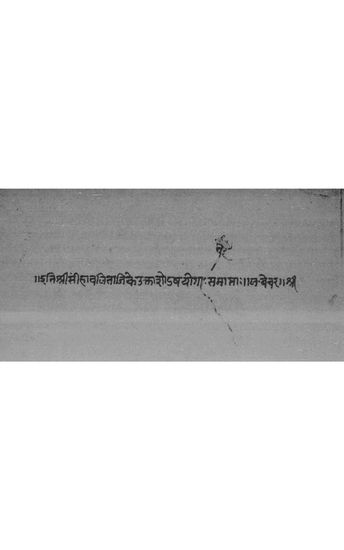 ॥इति श्रीसीहावजिताजिके उक्ताशोऽषयोगाः समाप्ताः॥ ॥श्री